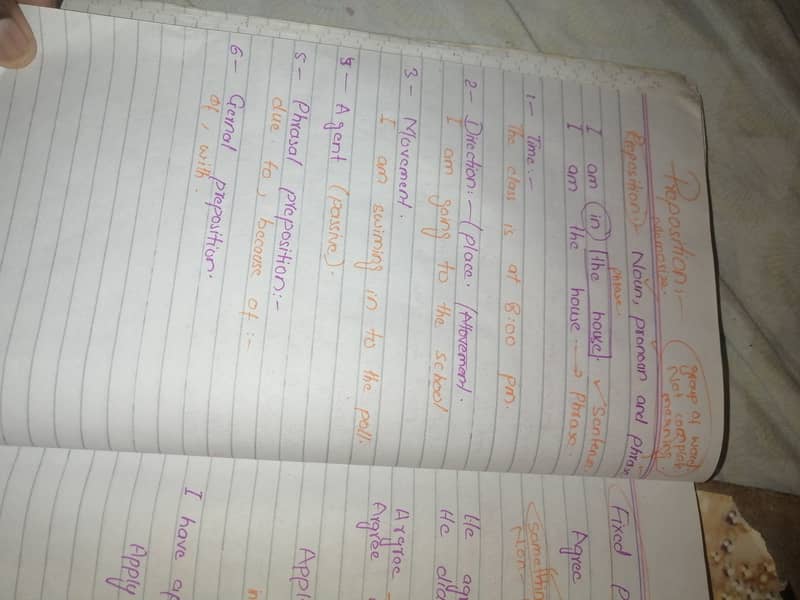 Preposition:-
group of word
Not complete
meaning.
Preposition:- Noun, pronoun and phras
phrase.
I am in the house. ✓ Santence
I am the house → Phrase.
1- Time:-
The class is at 8:00 pm.
2- Direction:- (place. (Movement.
I am going to the school
3- Movement.
I am swiming in to the poll.
4- Agent (passive).
5- Phrasal preposition:-
due to, because of:-
6- Gernal preposition.
of, with.
Fixed P
Agree
Somethin
Non-
He agr
He dia
Argree
Argree
Appl
in
I have ap
Apply